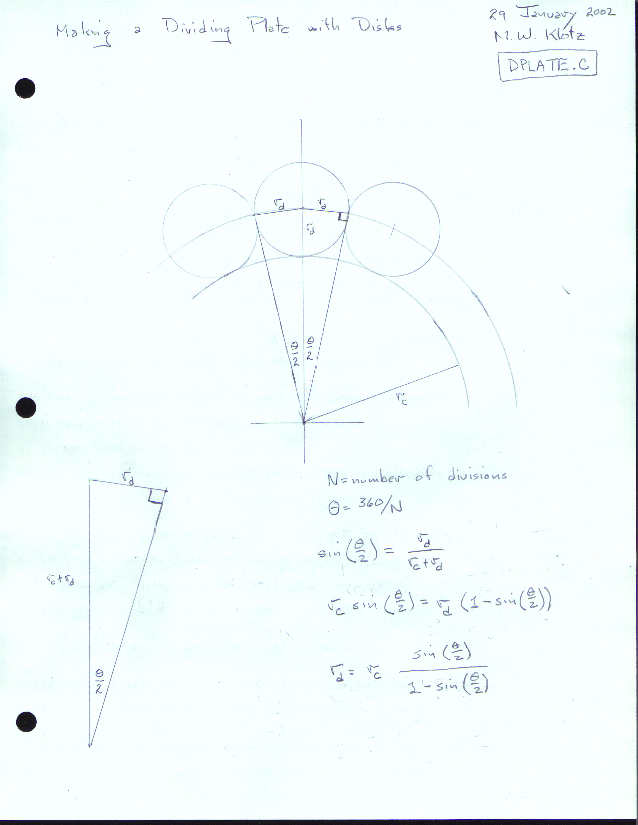 Making a Dividing Plate with Disks
29 January 2002
M.W. Klotz
DPLATE.C
r_d r_d
r_d
θ/2 θ/2
r_c
r_d
r_c+r_d
θ/2
N=number of divisions
θ= 360/N
sin(θ/2) = r_d/(r_c+r_d)
r_c sin(θ/2) = r_d (1-sin(θ/2))
r_d = r_c sin(θ/2)/(1-sin(θ/2))